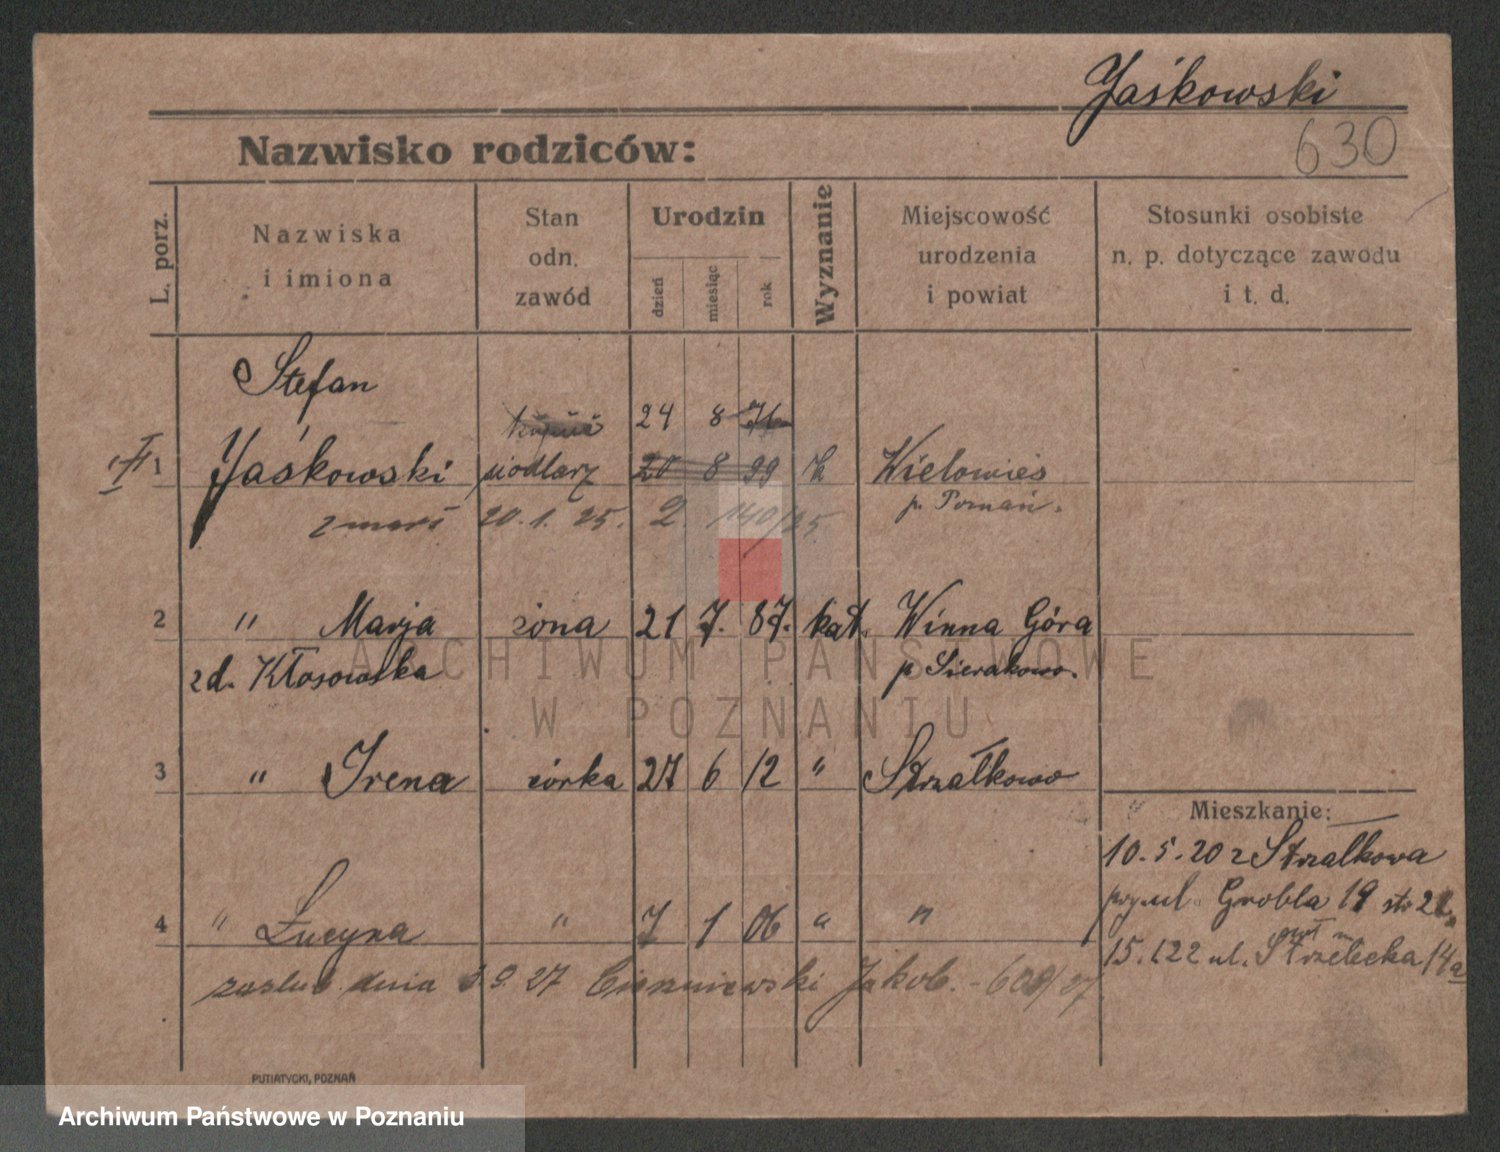 Jaśkowski
630
Nazwisko rodziców:
L. porz.
Nazwiska
i imiona
Stan
odn.
zawód
Urodzin
dzień
miesiąc
rok
Wyznanie
Miejscowość
urodzenia
i powiat
Stosunki osobiste
n. p. dotyczące zawodu
i t. d.
Stefan
24 8 76
1 Jaśkowski siodlarz 20 8 99 k Wielowieś
zmarł 20. 1. 25. 2. 140/25 p. Poznań.
2 " Marja żona 21 7. 87. kat. Winna Góra
zd. Kłosowska p Sierakowo.
3 " Irena córka 27 6 12 " Strzałkowo
Mieszkanie:
10. 5. 20 z Strzalkowa
4 " Łucyna " 7 1 06 " "
przy ul. Grobla 19 str 21.
15. 1.22 ul. Strzelecka 14a
zaślub. dnia 3 9. 27 Jakob. - 609/27
PUTIATYCKI, POZNAŃ
ARCHIWUM PAŃSTWOWE
W POZNANIU
Archiwum Państwowe w Poznaniu